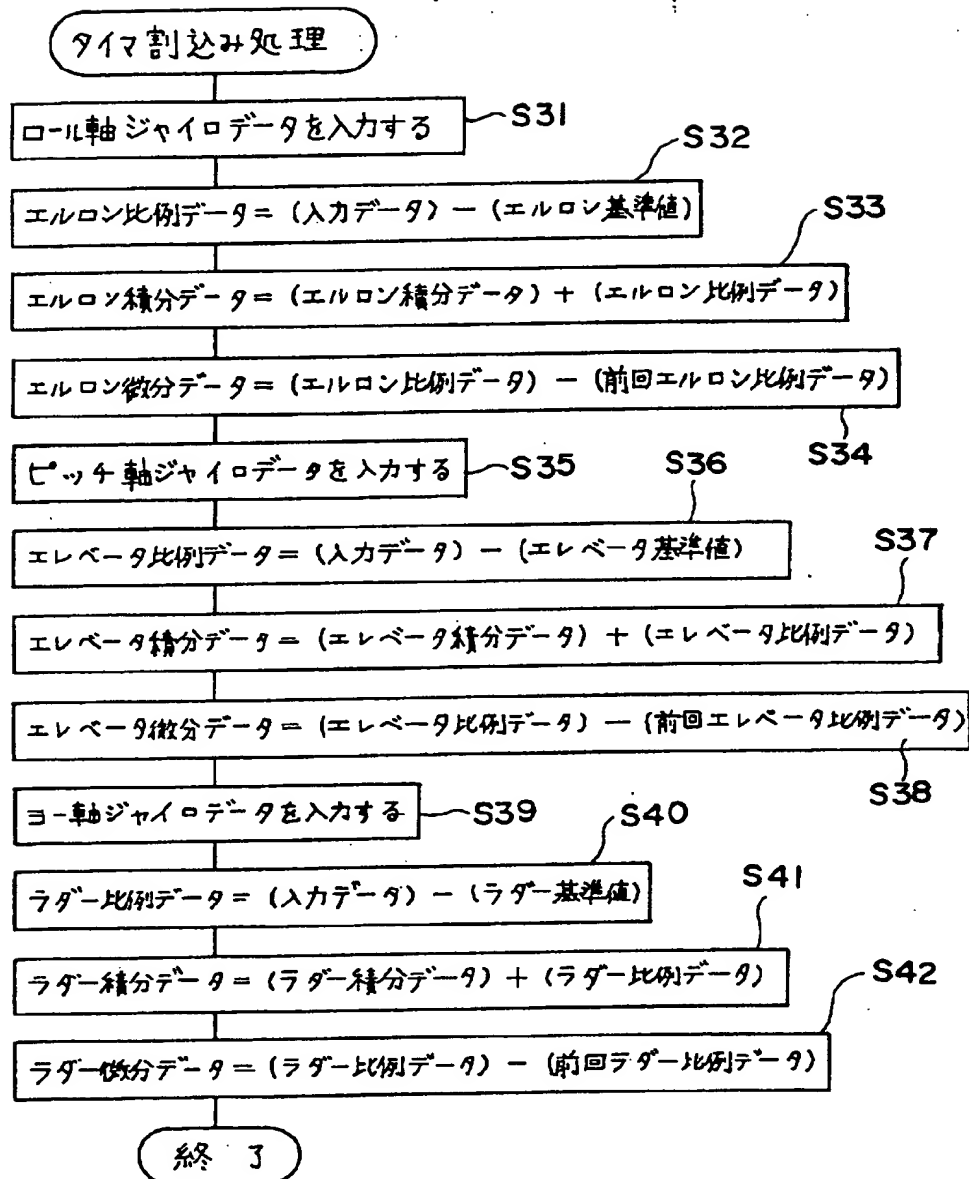 タイマ割込み処理
ロール軸ジャイロデータを入力する S31
S32
エルロン比例データ=(入力データ)-(エルロン基準値)
S33
エルロン積分データ=(エルロン積分データ)+(エルロン比例データ)
エルロン微分データ=(エルロン比例データ)-(前回エルロン比例データ)
S34
ピッチ軸ジャイロデータを入力する S35
S36
エレベータ比例データ=(入力データ)-(エレベータ基準値)
S37
エレベータ積分データ=(エレベータ積分データ)+(エレベータ比例データ)
エレベータ微分データ=(エレベータ比例データ)-(前回エレベータ比例データ)
S38
ヨー軸ジャイロデータを入力する S39
S40
ラダー比例データ=(入力データ)-(ラダー基準値)
S41
ラダー積分データ=(ラダー積分データ)+(ラダー比例データ)
S42
ラダー微分データ=(ラダー比例データ)-(前回ラダー比例データ)
終了